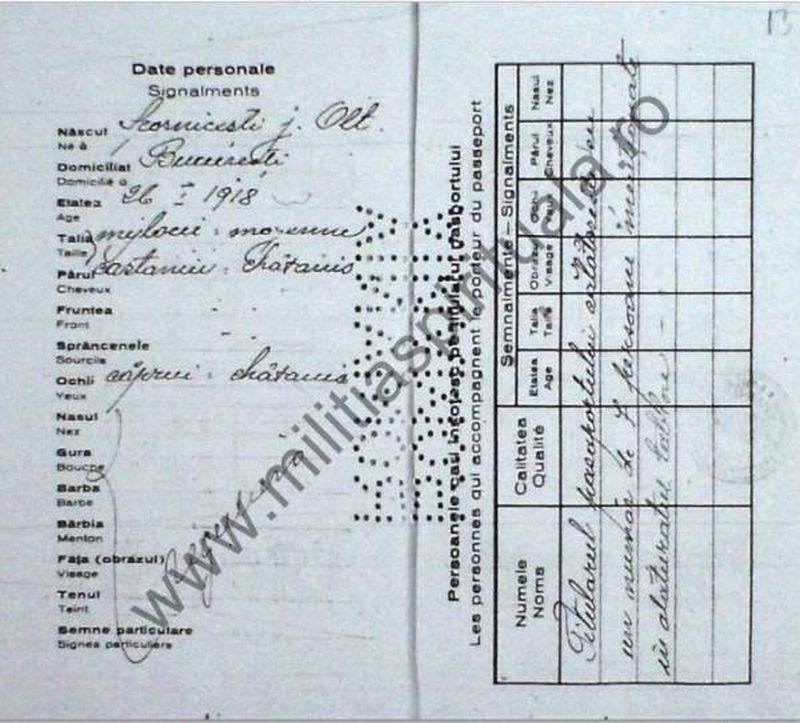 13
Date personale
Signalments
Născut Scornicești j. Olt.
Né à
Domiciliat București
Domicilié à
Etatea 26 I 1918
Age
Talia mijlociu : moyenne
Taille
Părul castaniu : châtains
Cheveux
Fruntea
Front
Sprâncenele
Sourcils
Ochii căprui : châtains
Yeux
Nasul
Nez
Gura
Bouche
Barba
Barbe
Bărbia
Menton
Fața (obrazul)
Visage
Tenul
Teint
Semne particulare
Signes particuliers
Persoanele cari însoțesc pe titularul pașportului
Les personnes qui accompagnent le porteur du passeport
Numele
Noms
Calitatea
Qualité
Semnalmente – Signalments
Etatea
Age
Talia
Taille
Obrazul
Visage
Ochii
Yeux
Părul
Cheveux
Nasul
Nez
Titularul pașaportului călătorește cu
un număr de 7 persoane
în alăturatul tablou
www.militiaspirituala.ro